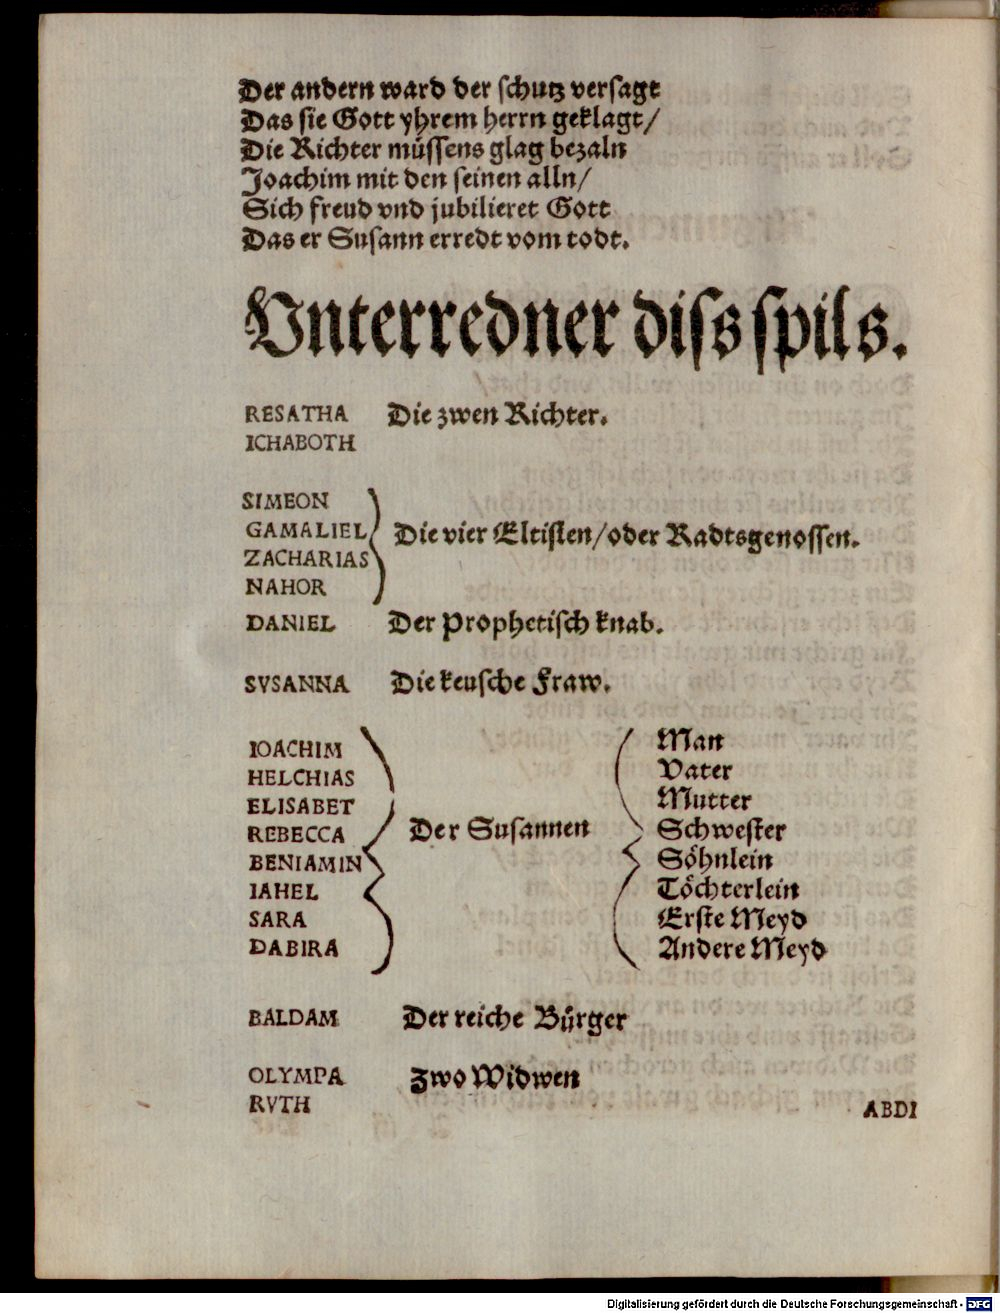 Der andern ward der schutz versagt
Das sie Gott yhrem herrn geklagt/
Die Richter müssens glag bezaln
Joachim mit den seinen alln/
Sich freud vnd jubilieret Gott
Das er Susann erredt vom todt.
Vnterredner diss spils.
RESATHA Die zwen Richter.
ICHABOTH
SIMEON
GAMALIEL Die vier Eltisten/oder Radtsgenossen.
ZACHARIAS
NAHOR
DANIEL Der Prophetisch knab.
SVSANNA Die keusche Fraw.
IOACHIM Man
HELCHIAS Vater
ELISABET Mutter
REBECCA Der Susannen Schwester
BENIAMIN Söhnlein
IAHEL Töchterlein
SARA Erste Meyd
DABIRA Andere Meyd
BALDAM Der reiche Bůrger
OLYMPA Zwo Widwen
RVTH
ABDI
Digitalisierung gefördert durch die Deutsche Forschungsgemeinschaft - DFG